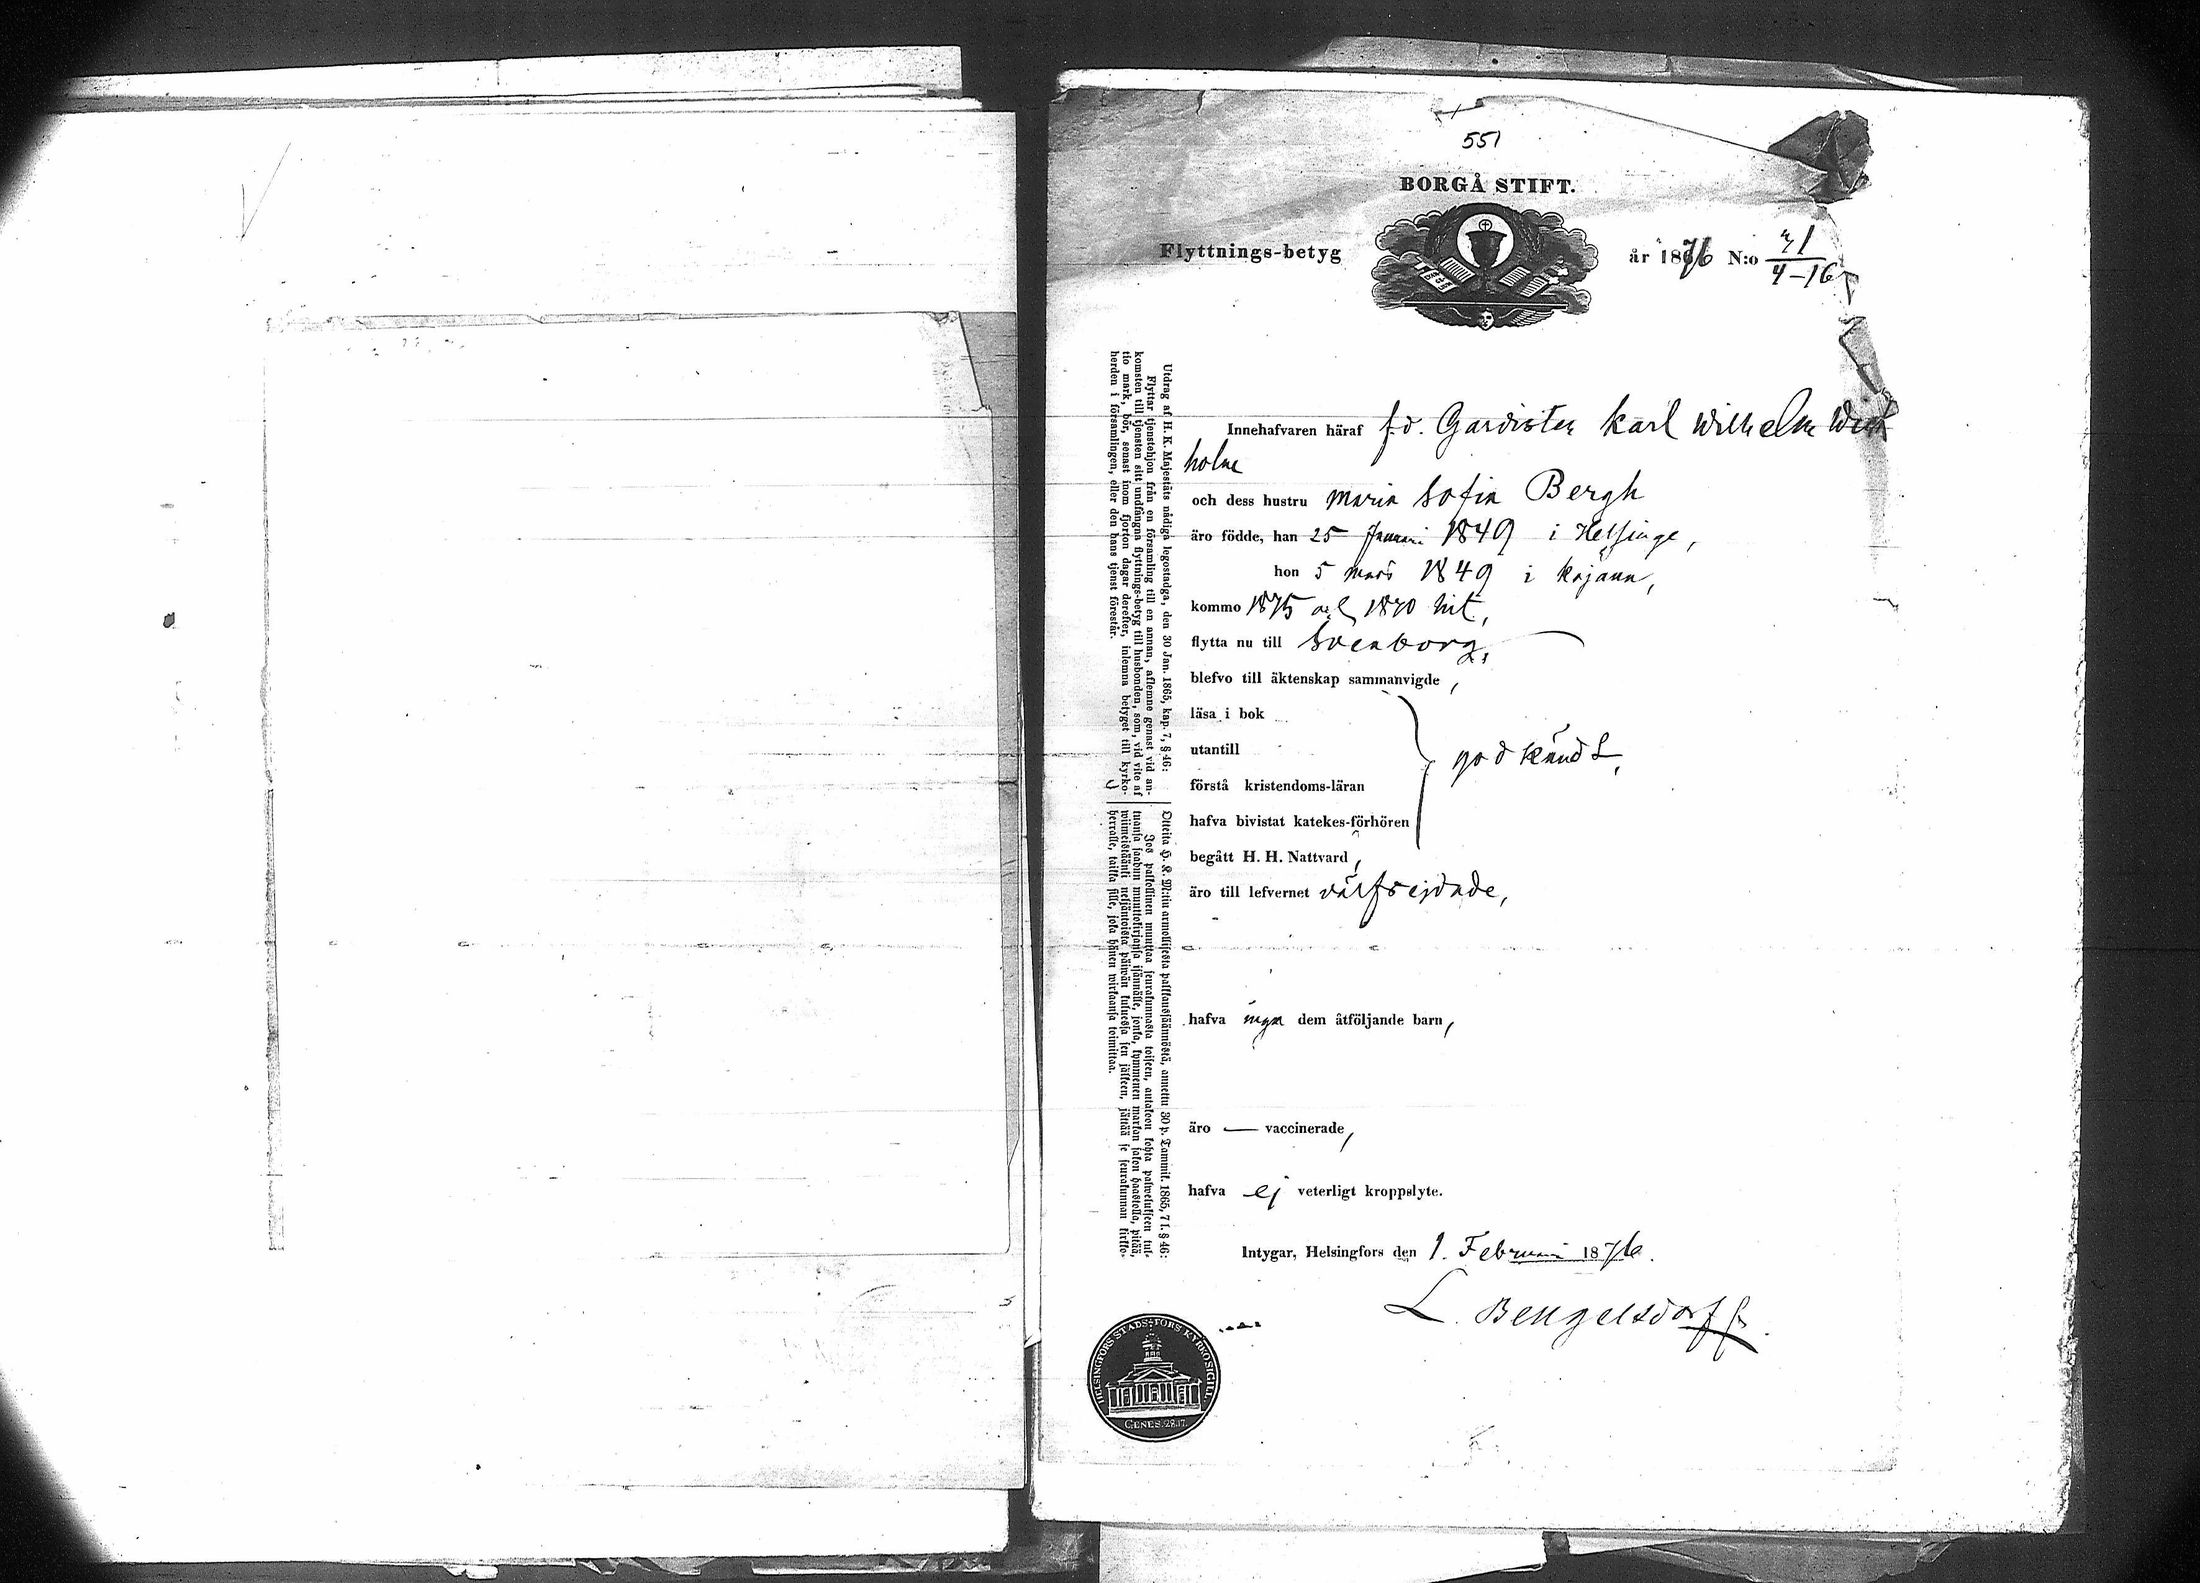 551
BORGÅ STIFT.
Flyttnings-betyg år 1876 N:o 71
4-16
Innehafvaren häraf f.d. Gardisten Karl Wilhelm
holm
och dess hustru Maria Sofia Bergh
äro födde, han 25 Januari 1849 i Helsinge,
hon 5 mars 1849 i Kajana,
kommo 1875 och 1870 hit,
flytta nu till Sveaborg,
blefvo till äktenskap sammanvigde,
läsa i bok
utantill
godkändt,
förstå kristendoms-läran
hafva bivistat katekes-förhören
begått H. H. Nattvard,
äro till lefvernet välfrejdade,
hafva inga dem åtföljande barn,
äro — vaccinerade,
hafva ej veterligt kroppslyte.
Intygar, Helsingfors den 1. Februari 1876.
L. Bengelsdorff
HELSINGFORS STADS-FÖRS KYRKOSIGILL.
GENES. 28.17.
Utdrag af H. K. Majestäts nådiga legostadga, den 30 Jan. 1865, kap. 7, § 46:
Flyttar tjenstehjon från en församling till en annan, aflemne genast vid an-
komsten till tjensten sitt undfångna flyttnings-betyg till husbonden, som, vid vite af
tio mark, bör, senast inom fjorton dagar derefter, inlemna betyget till kyrko-
herden i församlingen, eller den hans tjenst förestår.
Otteita H. K. M:tin armollisesta palkkaussäännöstä, annettu 30 p. Tammik. 1865, 7 l. § 46:
Jos palkollinen muuttaa seurakunnasta toiseen, antakoon kohta palwelukseen tul-
tuansa saadun muuttokirjansa isännälle, jonka, kymmenen markan sakon haastolla, pitää,
wiimeistäänki neljäntoista päiwän kuluessa sen jälkeen, jättää se seurakunnan kirkko-
herralle, taikka sille, joka hänen wirkaansa toimittaa.